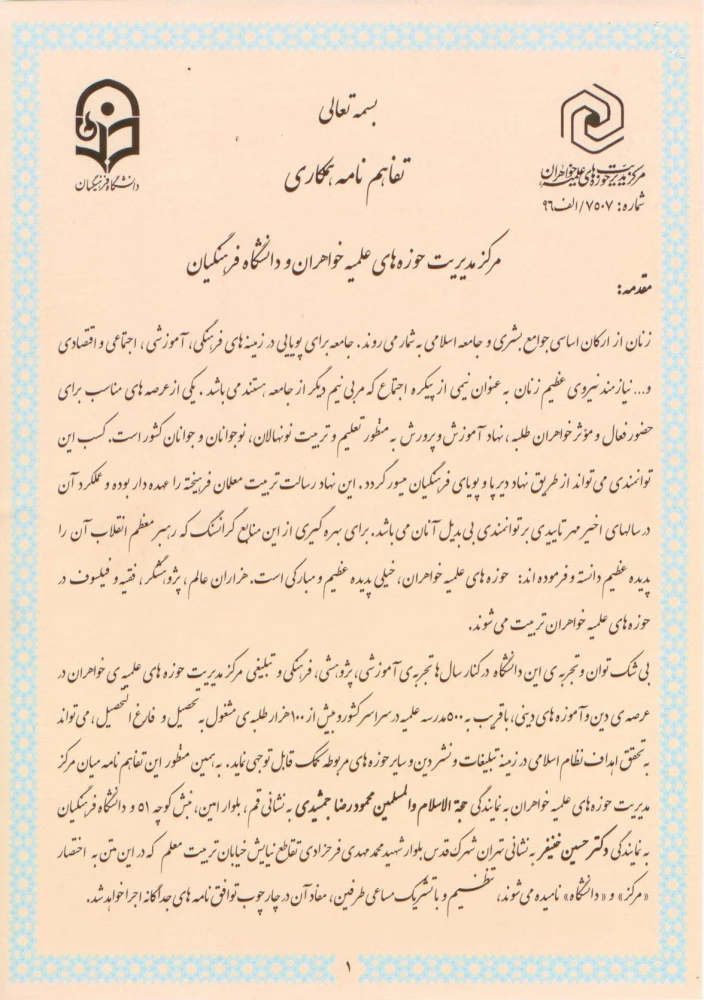 بسمه تعالی
تفاهم نامه همکاری
دانشگاه فرهنگیان
مرکز مدیریت حوزه های علمیه خواهران
شماره: ۷۵۰۷/الف۹۶
مرکز مدیریت حوزه های علمیه خواهران و دانشگاه فرهنگیان
مقدمه:
زنان از ارکان اساسی جوامع بشری و جامعه اسلامی به شمار می روند. جامعه برای پویایی در زمینه های فرهنگی، آموزشی، اجتماعی و اقتصادی
و... نیازمند نیروی عظیم زنان به عنوان نیمی از پیکره اجتماع که مربی نیم دیگر از جامعه هستند می باشد. یکی از عرصه های مناسب برای
حضور فعال و مؤثر خواهران طلبه، نهاد آموزش و پرورش به منظور تعلیم و تربیت نونهالان، نوجوانان و جوانان کشور است. کسب این
توانمندی می تواند از طریق نهاد دیرپا و پویای فرهنگیان میسور گردد. این نهاد رسالت تربیت معلمان فرهیخته را عهده دار بوده و عملکرد آن
در سالهای اخیر مهر تاییدی بر توانمندی بی بدیل آنان می باشد. برای بهره گیری از این منابع گرانسنگ که رهبر معظم انقلاب آن را
پدیده عظیم دانسته و فرموده اند: حوزه های علمیه خواهران، خیلی پدیده عظیم و مبارکی است. هزاران عالم، پژوهشگر، فقیه و فیلسوف در
حوزه های علمیه خواهران تربیت می شوند.
بی شک توان و تجربه ی این دانشگاه در کنار سال ها تجربه ی آموزشی، پژوهشی، فرهنگی و تبلیغی مرکز مدیریت حوزه های علمیه ی خواهران در
عرصه ی دین و آموزه های دینی، با قریب به ۵۰۰ مدرسه علمیه در سراسر کشور و بیش از ۱۰۰ هزار طلبه ی مشغول به تحصیل و فارغ التحصیل، می تواند
به تحقق اهداف نظام اسلامی در زمینه تبلیغات و نشر دین و سایر حوزه های مربوطه کمک قابل توجهی نماید. به همین منظور این تفاهم نامه میان مرکز
مدیریت حوزه های علمیه خواهران به نمایندگی حجة الاسلام والمسلمین محمود رضا جمشیدی به نشانی قم، بلوار امین، نبش کوچه ۵۱ و دانشگاه فرهنگیان
به نمایندگی دکتر حسین خنیفر به نشانی تهران شهرک قدس بلوار شهید محمد مهدی فرحزادی تقاطع نیایش خیابان تربیت معلم که در این متن به اختصار
«مرکز» و «دانشگاه» نامیده می شوند، تنظیم و با تشریک مساعی طرفین، مفاد آن در چارچوب توافق نامه های جداگانه اجرا خواهد شد.
۱